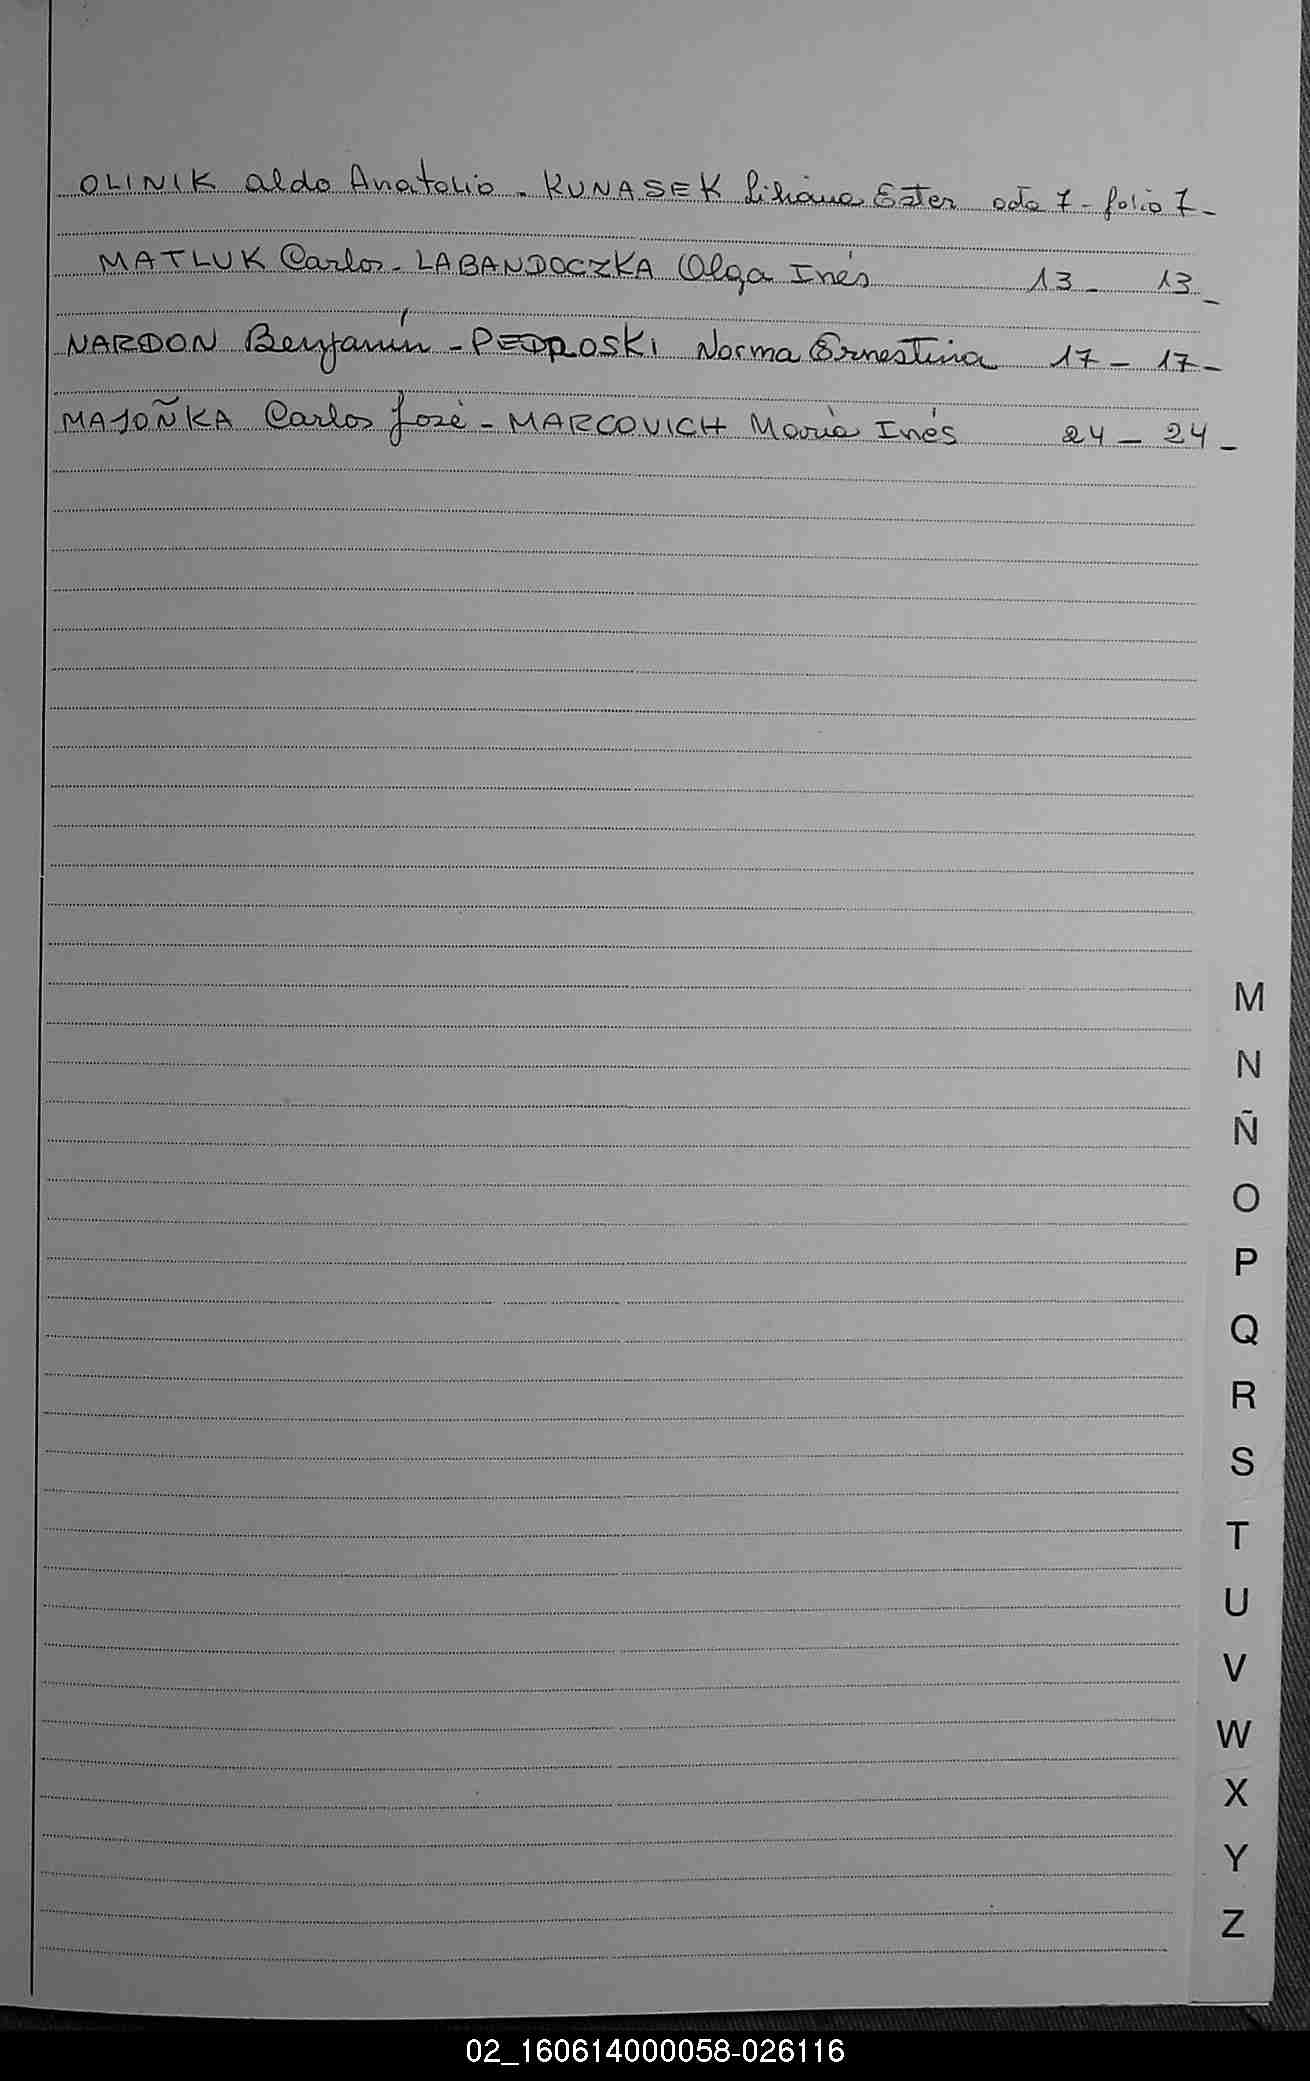 OLINIK aldo Anatolio - KUNASEK Liliana Ester acta 7 - folio 7 -
MATLUK Carlos - LABANDOCZKA Olga Inés 13 - 13 -
NARDON Benjamín - PEDROSKI Norma Ernestina 17 - 17 -
MAJOÑKA Carlos José - MARCOVICH María Inés 24 - 24 -
M
N
Ñ
O
P
Q
R
S
T
U
V
W
X
Y
Z
02_160614000058-026116